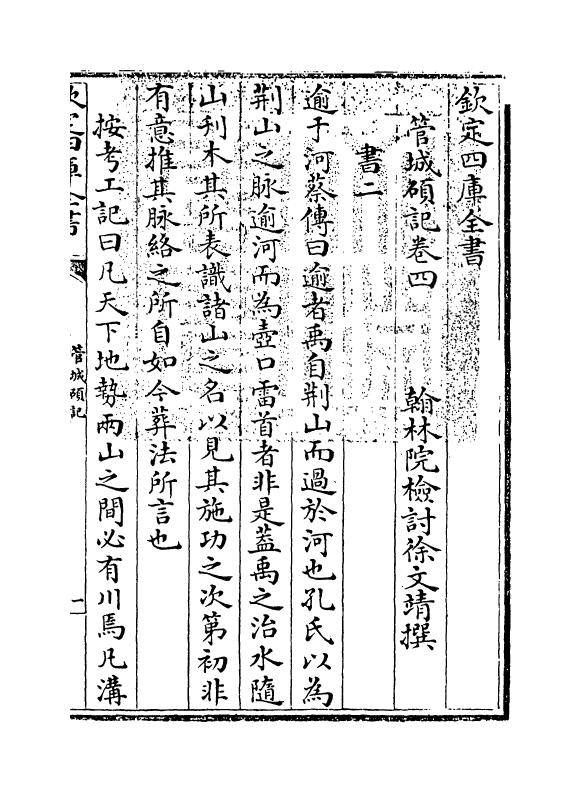 欽定四庫全書
管城碩記卷四　翰林院檢討徐文靖撰
書二
逾于河蔡傳曰逾者禹自荆山而過於河也孔氏以為
荆山之脉逾河而為壺口雷首者非是葢禹之治水隨
山刋木其所表識諸山之名以見其施功之次第初非
有意推其脉絡之所自如今葬法所言也
按考工記曰凡天下地勢兩山之間必有川焉凡溝
欽定四庫全書
管城碩記
一